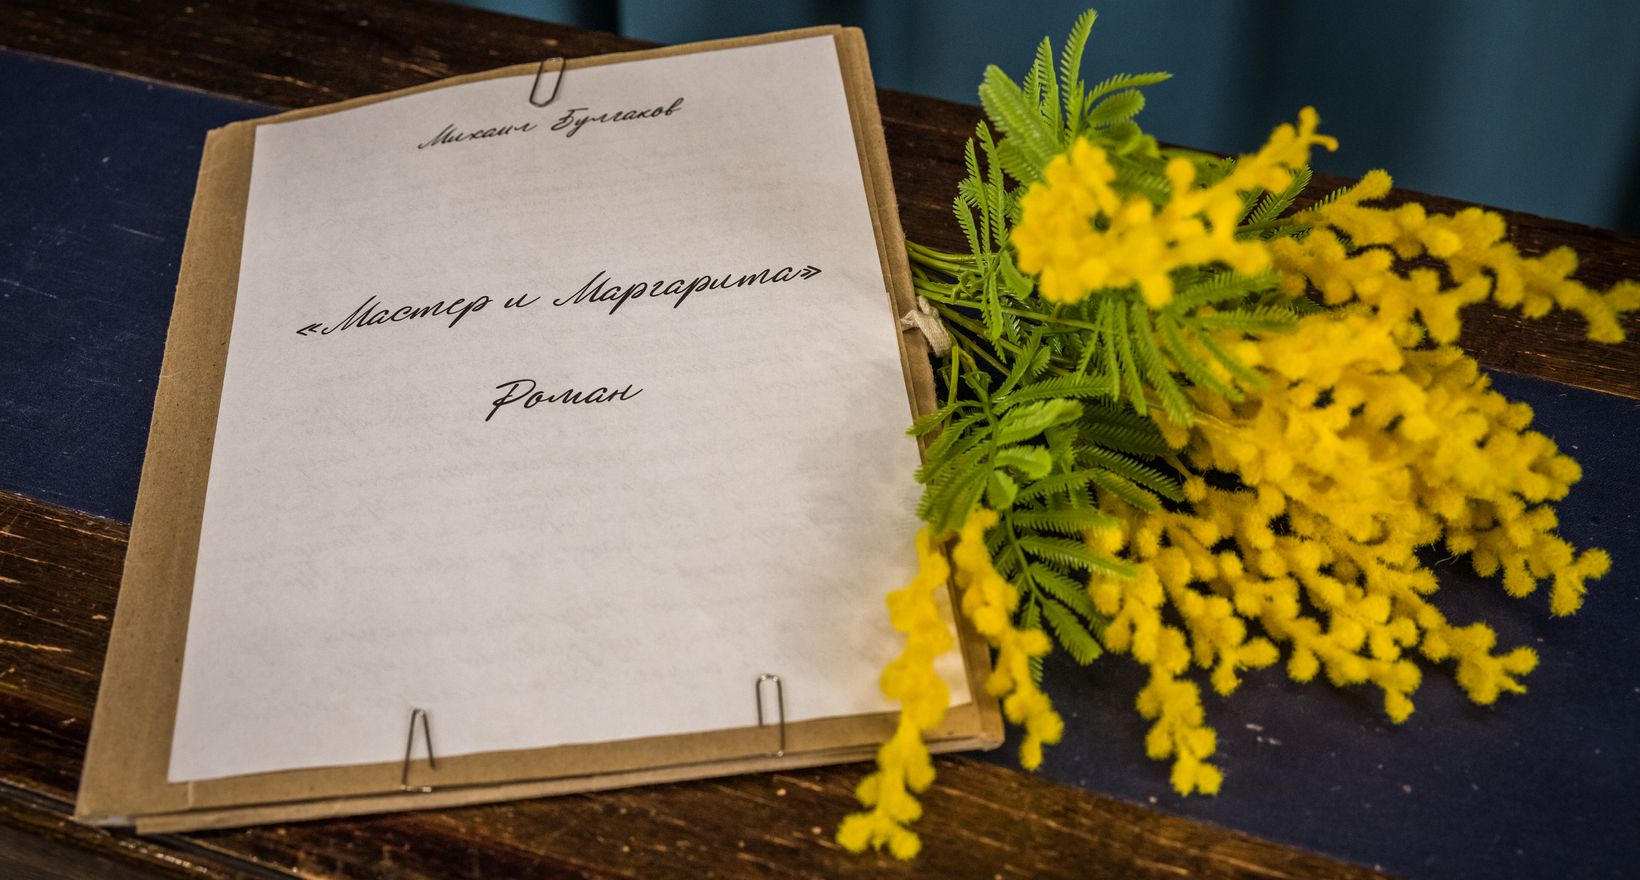 Михаил Булгаков
«Мастер и Маргарита»
Роман